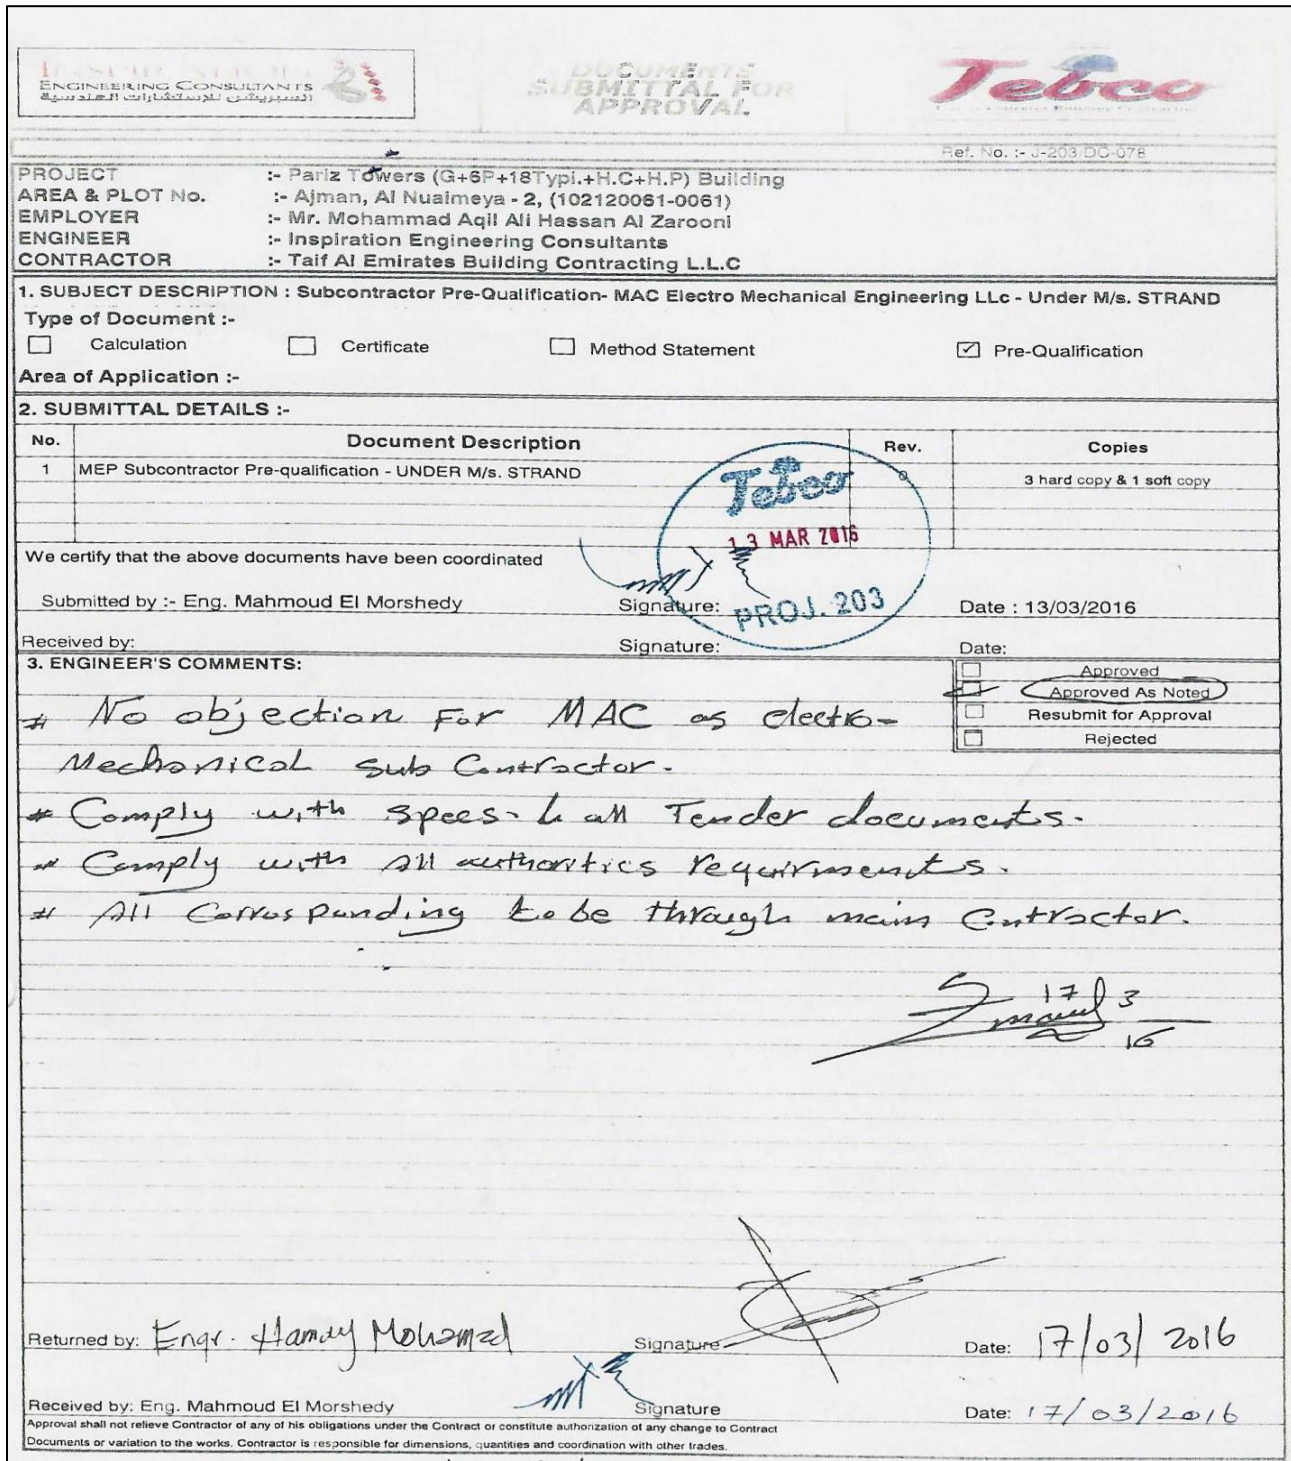 ENGINEERING CONSULTANTS
DOCUMENTS
SUBMITTAL FOR
APPROVAL
Tebco
Ref. No. :- J-203 DC-078
PROJECT :- Pariz Towers (G+6P+18Typi.+H.C+H.P) Building
AREA & PLOT No. :- Ajman, Al Nuaimeya - 2, (102120061-0061)
EMPLOYER :- Mr. Mohammad Aqil Ali Hassan Al Zarooni
ENGINEER :- Inspiration Engineering Consultants
CONTRACTOR :- Taif Al Emirates Building Contracting L.L.C
1. SUBJECT DESCRIPTION : Subcontractor Pre-Qualification- MAC Electro Mechanical Engineering LLc - Under M/s. STRAND
Type of Document :-
Calculation Certificate Method Statement Pre-Qualification
Area of Application :-
2. SUBMITTAL DETAILS :-
No. Document Description Rev. Copies
1 MEP Subcontractor Pre-qualification - UNDER M/s. STRAND 0 3 hard copy & 1 soft copy
Tebco
13 MAR 2016
PROJ. 203
We certify that the above documents have been coordinated
Submitted by :- Eng. Mahmoud El Morshedy Signature: Date : 13/03/2016
Received by: Signature: Date:
3. ENGINEER'S COMMENTS:
Approved
Approved As Noted
Resubmit for Approval
Rejected
# No objection For MAC as electro-
Mechanical Sub Contractor.
# Comply with Specs. & all Tender documents.
# Comply with All authorities requirments.
# All Corrosponding to be through main Contractor.
17 3
16
Returned by: Engr. Hamdy Mohamed Signature Date: 17/03/2016
Received by: Eng. Mahmoud El Morshedy Signature Date: 17/03/2016
Approval shall not relieve Contractor of any of his obligations under the Contract or constitute authorization of any change to Contract
Documents or variation to the works. Contractor is responsible for dimensions, quantities and coordination with other trades.